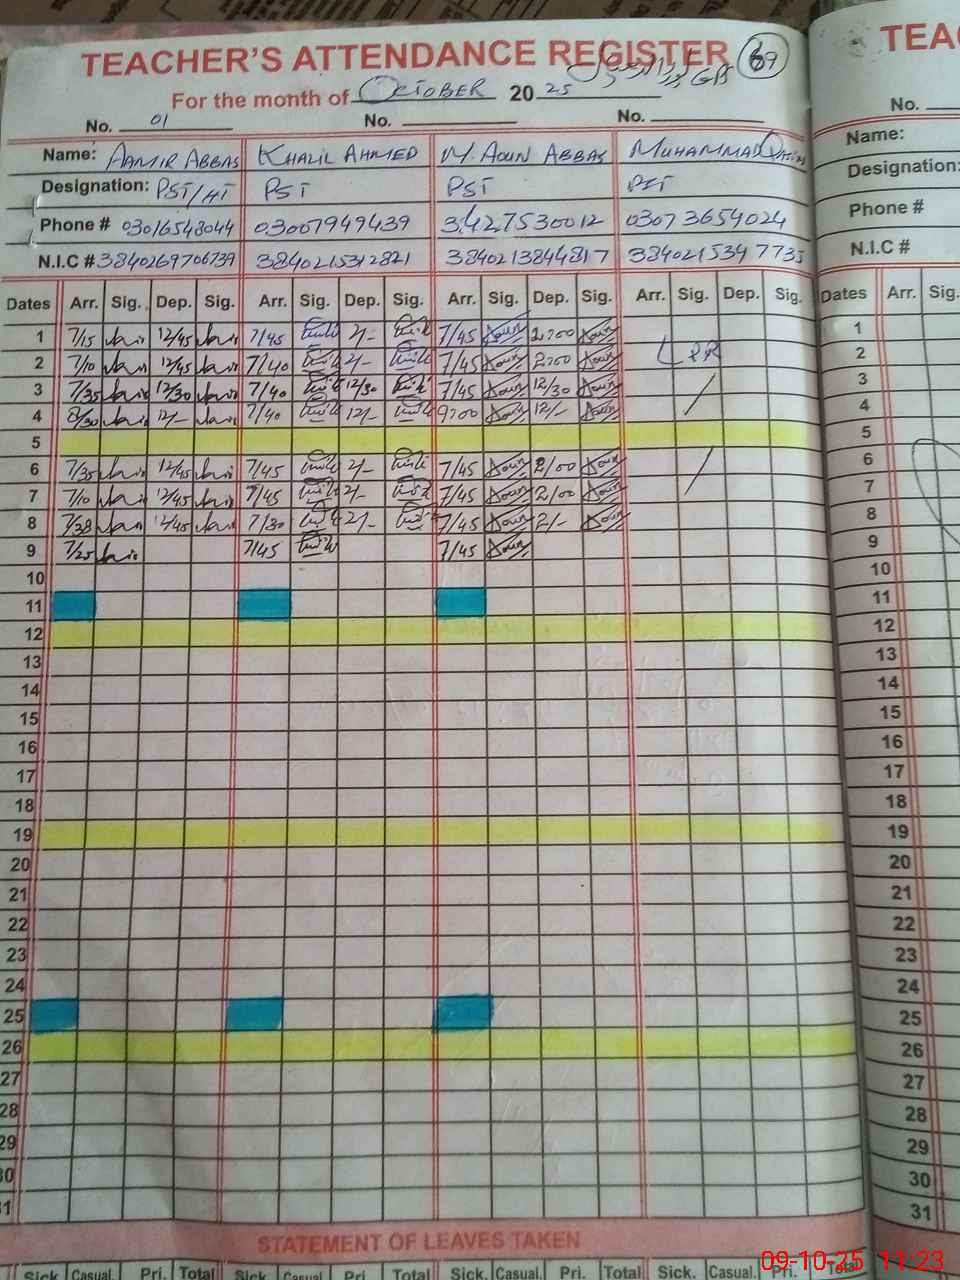 TEACHER'S ATTENDANCE REGISTER
For the month of OCTOBER 20 25 GB
No. 01 No. No.
Name: AAMIR ABBAS KHALIL AHMED M. AOUN ABBAS MUHAMMAD
Designation: PST/HT PST PST PST
Phone # 03016548044 03007949439 3427530012 03073654024
N.I.C # 3840269706739 3840215312821 3840213844817
Dates Arr. Sig. Dep. Sig. Arr. Sig. Dep. Sig. Arr. Sig. Dep. Sig. Arr. Sig. Dep. Sig.
1 7/15 12/45 7/45 2/- 7/45 Aoun 2:00 Aoun
2 7/10 12/45 7/40 2/- 7/45 Aoun 2:00 Aoun LPR
3 7/35 12/30 7/40 12/30 7/45 Aoun 12/30 Aoun
4 8/30 12/- 7/40 12/- 9:00 Aoun 12/- Aoun
5
6 7/35 12/45 7/45 2/- 7/45 Aoun 2/00 Aoun
7 7/10 12/45 7/45 2/- 7/45 Aoun 2/00 Aoun
8 7/38 12/45 7/30 2/- 7/45 Aoun 2/- Aoun
9 7/25 7/45 7/45 Aoun
10
11
12
13
14
15
16
17
18
19
20
21
22
23
24
25
26
27
28
29
30
31
STATEMENT OF LEAVES TAKEN
Sick. Casual. Pri. Total Sick Casual. Pri. Total Sick. Casual. Pri. Total Sick. Casual. Pri. Total
TEAC
No.
Name:
Designation:
Phone #
N.I.C #
Dates Arr. Sig.
1
2
3
4
5
6
7
8
9
10
11
12
13
14
15
16
17
18
19
20
21
22
23
24
25
26
27
28
29
30
31
09-10-25 11:23